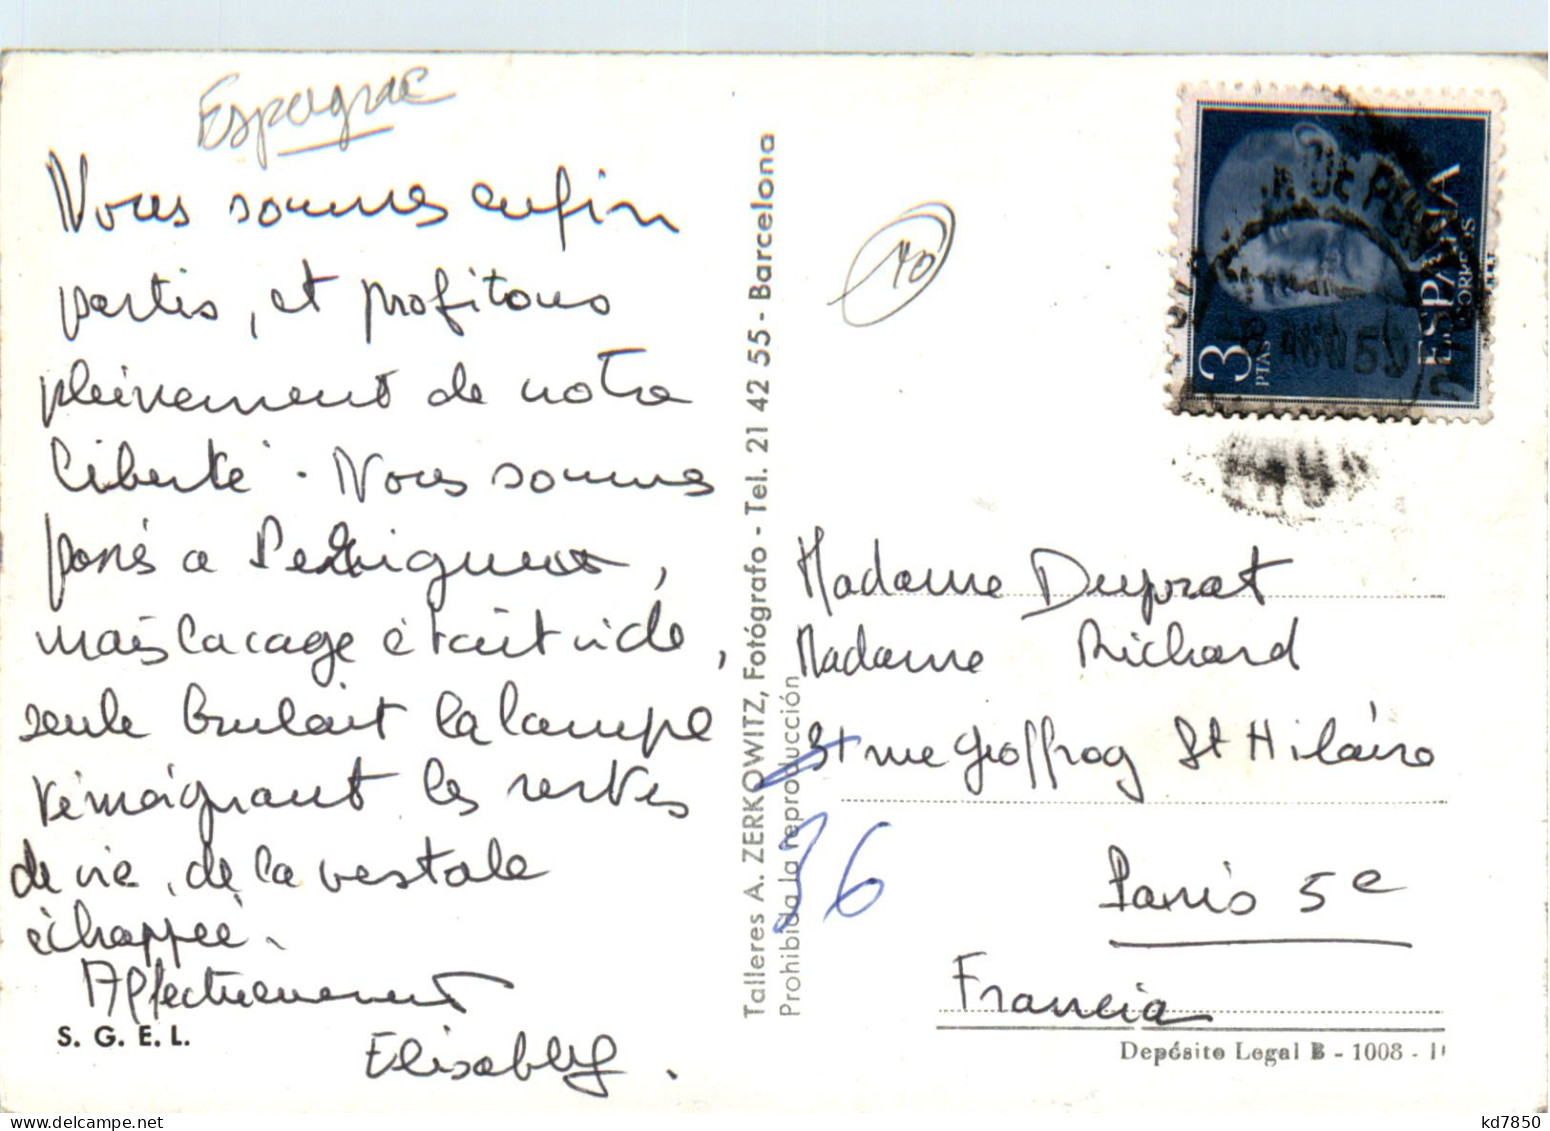 Espagne
Nous sommes enfin
partis, et profitons
pleinement de notre
liberté. Nous sommes
passés à Perigueux,
mais la cage était vide,
seule brulait la lampe
témoignant les restes
de vie, de la vestale
échappée.
Affectueusement
S. G. E. L.
Talleres A. ZERKOWITZ, Fotógrafo - Tel. 21 42 55 - Barcelona
Prohibida la reproducción
10
3
PTAS
ESPAÑA
CORREOS
Madame Duprat
Madame Richard
rue Geoffroy St Hilaire
36
Paris 5e
Francia
Depósito Legal B - 1008 -
kd7850